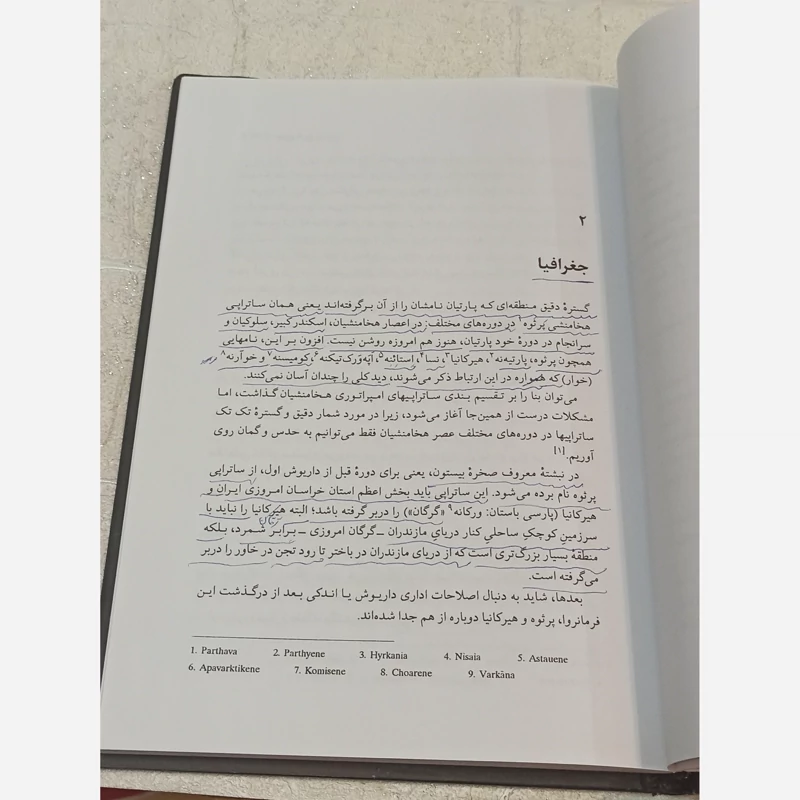 ۲
جغرافیا
گسترهٔ دقیق منطقه‌ای که پارتیان نامشان را از آن برگرفته‌اند یعنی همان ساتراپی
هخامنشی پرثوه۱ در دوره‌های مختلف: در اعصار هخامنشیان، اسکندر کبیر، سلوکیان و
سرانجام در دورهٔ خود پارتیان، هنوز هم امروزه روشن نیست. افزون بر این، نامهایی
همچون پرثوه، پارتیه‌نه۲، هیرکانیا۳، نسا۴، استائنه۵، اَپَه‌وَرک‌تیکنه۶، کومیسنه۷ و خوآرنه۸
(خوار) که همواره در این ارتباط ذکر می‌شوند، دید کلی را چندان آسان نمی‌کنند.
می‌توان بنا را بر تقسیم بندی ساتراپیهای امپراتوری هخامنشیان گذاشت، اما
مشکلات درست از همین‌جا آغاز می‌شود، زیرا در مورد شمار دقیق و گسترهٔ تک تک
ساتراپیها در دوره‌های مختلف عصر هخامنشیان فقط می‌توانیم به حدس و گمان روی
آوریم.[۱]
در نبشتهٔ معروف صخرهٔ بیستون، یعنی برای دورهٔ قبل از داریوش اول، از ساتراپی
پرثوه نام برده می‌شود. این ساتراپی باید بخش اعظم استان خراسان امروزی ایران و
هیرکانیا (پارسی باستان: ورکانه۹ «گرگان») را دربر گرفته باشد؛ البته هیرکانیا را نباید با
سرزمینِ کوچکِ ساحلیِ کنار دریای مازندران ــ گرگان امروزی ــ برابر شمرد، بلکه
منطقهٔ بسیار بزرگ‌تری است که از دریای مازندران در باختر تا رود تجن در خاور را دربر
می‌گرفته است.
بعدها، شاید به دنبال اصلاحات اداری داریوش یا اندکی بعد از درگذشت این
فرمانروا، پرثوه و هیرکانیا دوباره از هم جدا شده‌اند.
1. Parthava 2. Parthyene 3. Hyrkania 4. Nisaia 5. Astauene
6. Apavarktikene 7. Komisene 8. Choarene 9. Varkāna